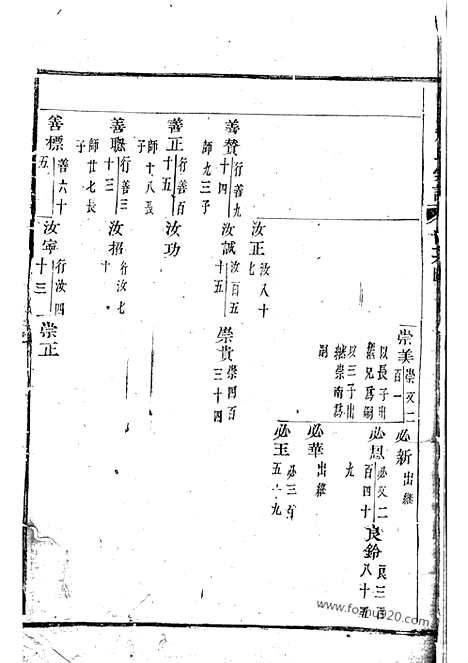 崇美 崇文二百一
以長子出繼兄爲嗣以三子出繼崇南爲嗣
必新 出繼
必恩 必文二百四十九
良鈴 良三百八十五
必華 出繼
必玉 必三百五十九
汝正 汝八十七
善贊 行善九十四
師九三子
汝誠 汝百五十五
崇貴 崇四百三十四
善正 行善百十五
師十八長子
汝功
善聰 行善三十三
師廿七長子
汝招 行汝七十
善標 善六十五
汝寧 行汝四十三
崇正
www.fomuu20.com